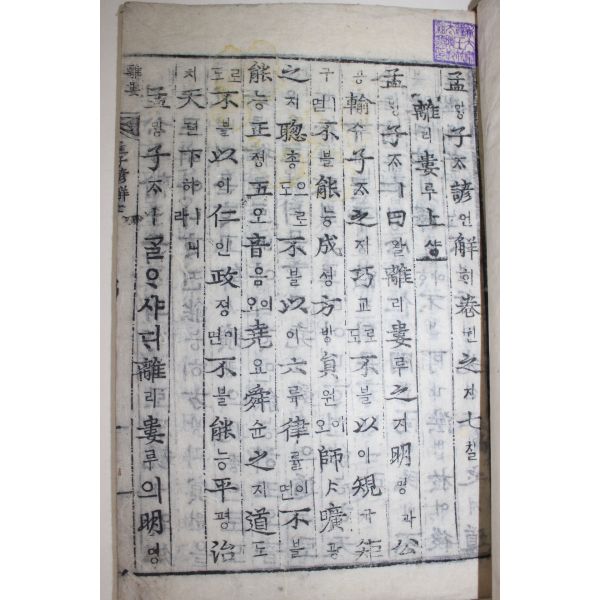 孟ᄆᆡᆼ子ᄌᆞ諺언解ᄒᆡ卷권之지七칠
離리婁루上샹
孟ᄆᆡᆼ子ᄌᆞㅣ曰왈離리婁루之지明명과公
공輸슈子ᄌᆞ之지巧교로도不블以이規규矩
구ㅣ면不블能능成셩方방員원이오師ᄉᆞ曠광
之지聰총으로도不블以이六륙律률이면不블
能능正졍五오音음이오堯요舜슌之지道도
로도不블以이仁인政졍이면不블能능平평治
치天텬下하ㅣ니라
孟ᄆᆡᆼ子ᄌᆞㅣ ᄀᆞᆯᄋᆞ샤ᄃᆡ離리婁루의明명
離婁
孟子諺解七